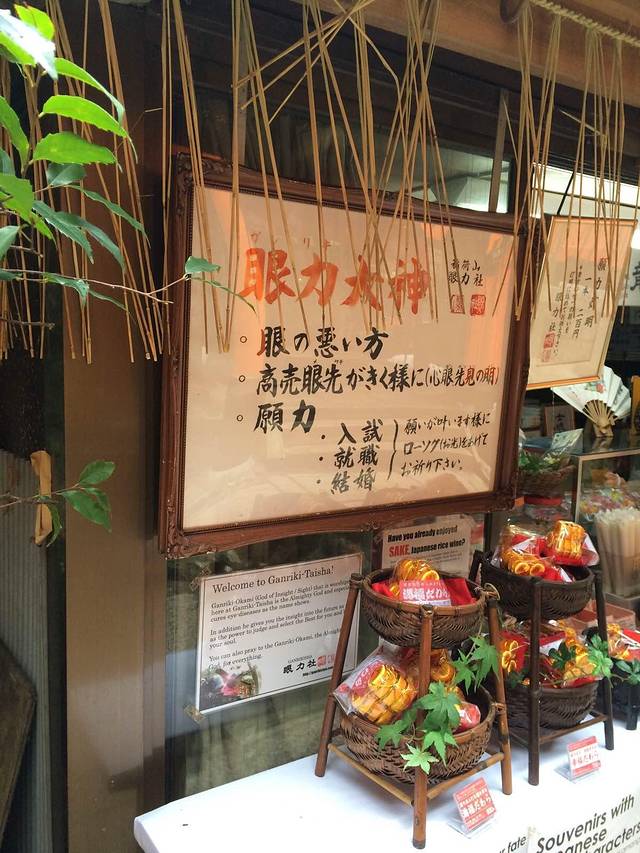 がんりき
眼力大神
稲荷山
眼力社
。眼の悪い方
。高売眼先がきく様に(心眼先見の明)
。願力
・入試
・就職
・結婚
願いが叶います様に
ローソク(お光)をあげて
お祈り下さい。
願力
二百円
眼力社
Welcome to Ganriki-Taisha!
Ganriki-Okami (God of Insight / Sight) that is worshiped
here at Ganriki-Taisha is the Almighty God and especially
cures eye diseases as the name shows.
In addition he gives you the insight into the future as
as the power to judge and select the Best for you and
your soul.
You can also pray to the Ganriki-Okami, the Almighty
God, for everything.
GANRIKISHA
眼力社
Have you already enjoyed
SAKE, Japanese rice wine?
満福だわら
満福だわら
幸福だわら
Souvenirs with
characters